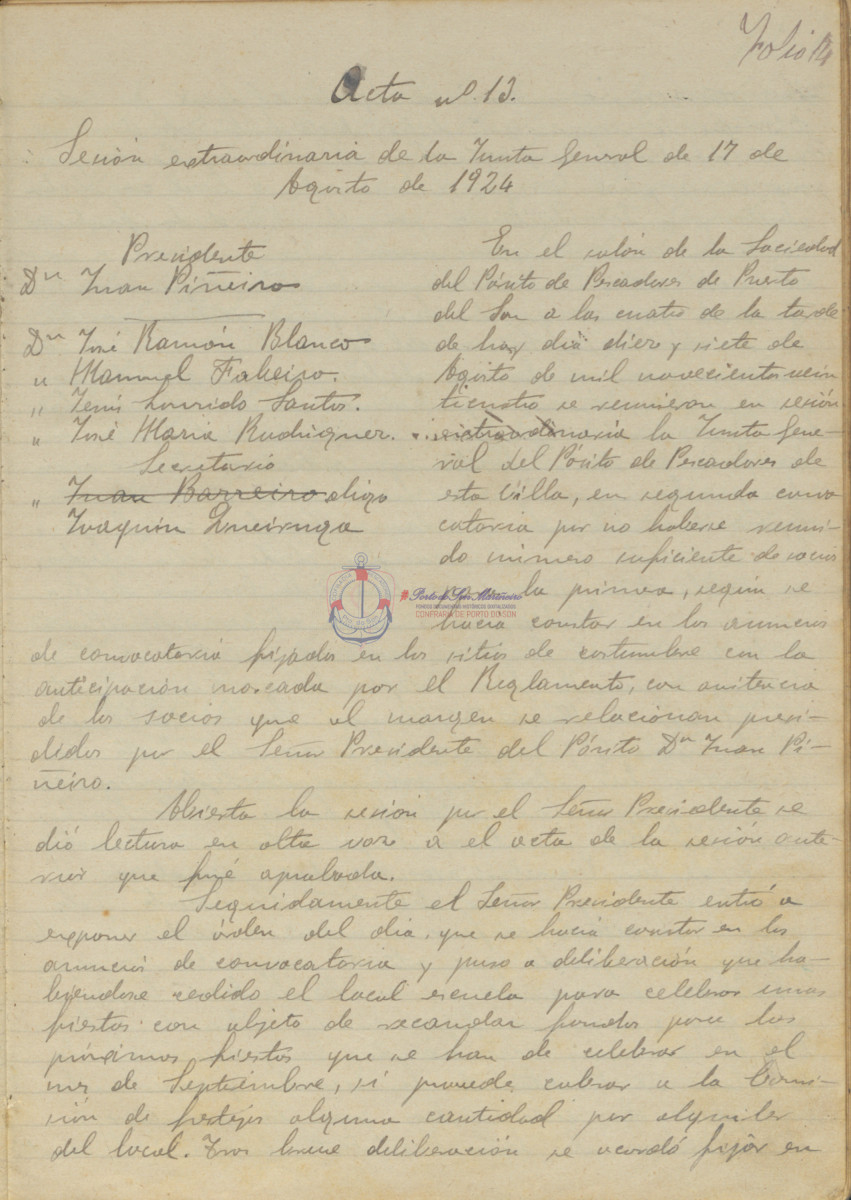 Folio 14
Acta nº 13.
Sesión extraordinaria de la Junta General de 17 de
Agosto de 1924
Presidente
Dn Juan Piñeiro
Dn José Ramón Blanco
" Manuel Fabeiro.
" Jesús Lourido Santos.
" José Maria Rodriguez.
Secretario
" Juan Barreiro digo
Joaquin Queiruga
En el salón de la Sociedad
del Pósito de Pescadores de Puerto
del Son a las cuatro de la tarde
de hoy dia diez y siete de
Agosto de mil novecientos vein
ticuatro se reunieron en sesión
extraordinaria la Junta Gene-
ral del Pósito de Pescadores de
esta Villa, en segunda convo
catoria por no haberse reuni-
do número suficiente de socios
la primera, según se
hacia constar en los anuncios
de convocatoria fijados en los sitios de costumbre con la
anticipación marcada por el Reglamento, con asistencia
de los socios que al margen se relacionan presi-
didos por el Señor Presidente del Pósito Dn Juan Pi-
ñeiro.
Abierta la sesión por el Señor Presidente se
dió lectura en alta voz a el acta de la sesión ante-
rior que fué aprobada.
Seguidamente el Señor Presidente entró a
exponer el órden del dia, que se hacia constar en los
anuncios de convocatoria y puso a deliberación que ha-
biendose cedido el local escuela para celebrar unas
fiestas con objeto de recaudar fondos para las
próximas fiestas que se han de celebrar en el
mes de Septiembre, si procede cobrar a la Comi-
sión de festejos alguna cantidad por alquiler
del local. Tras breve deliberación se acordó fijar en
#Porto do Son Mariñeiro
FONDOS DOCUMENTAIS HISTÓRICOS DIXITALIZADOS
CONFRARÍA DE PORTO DO SON